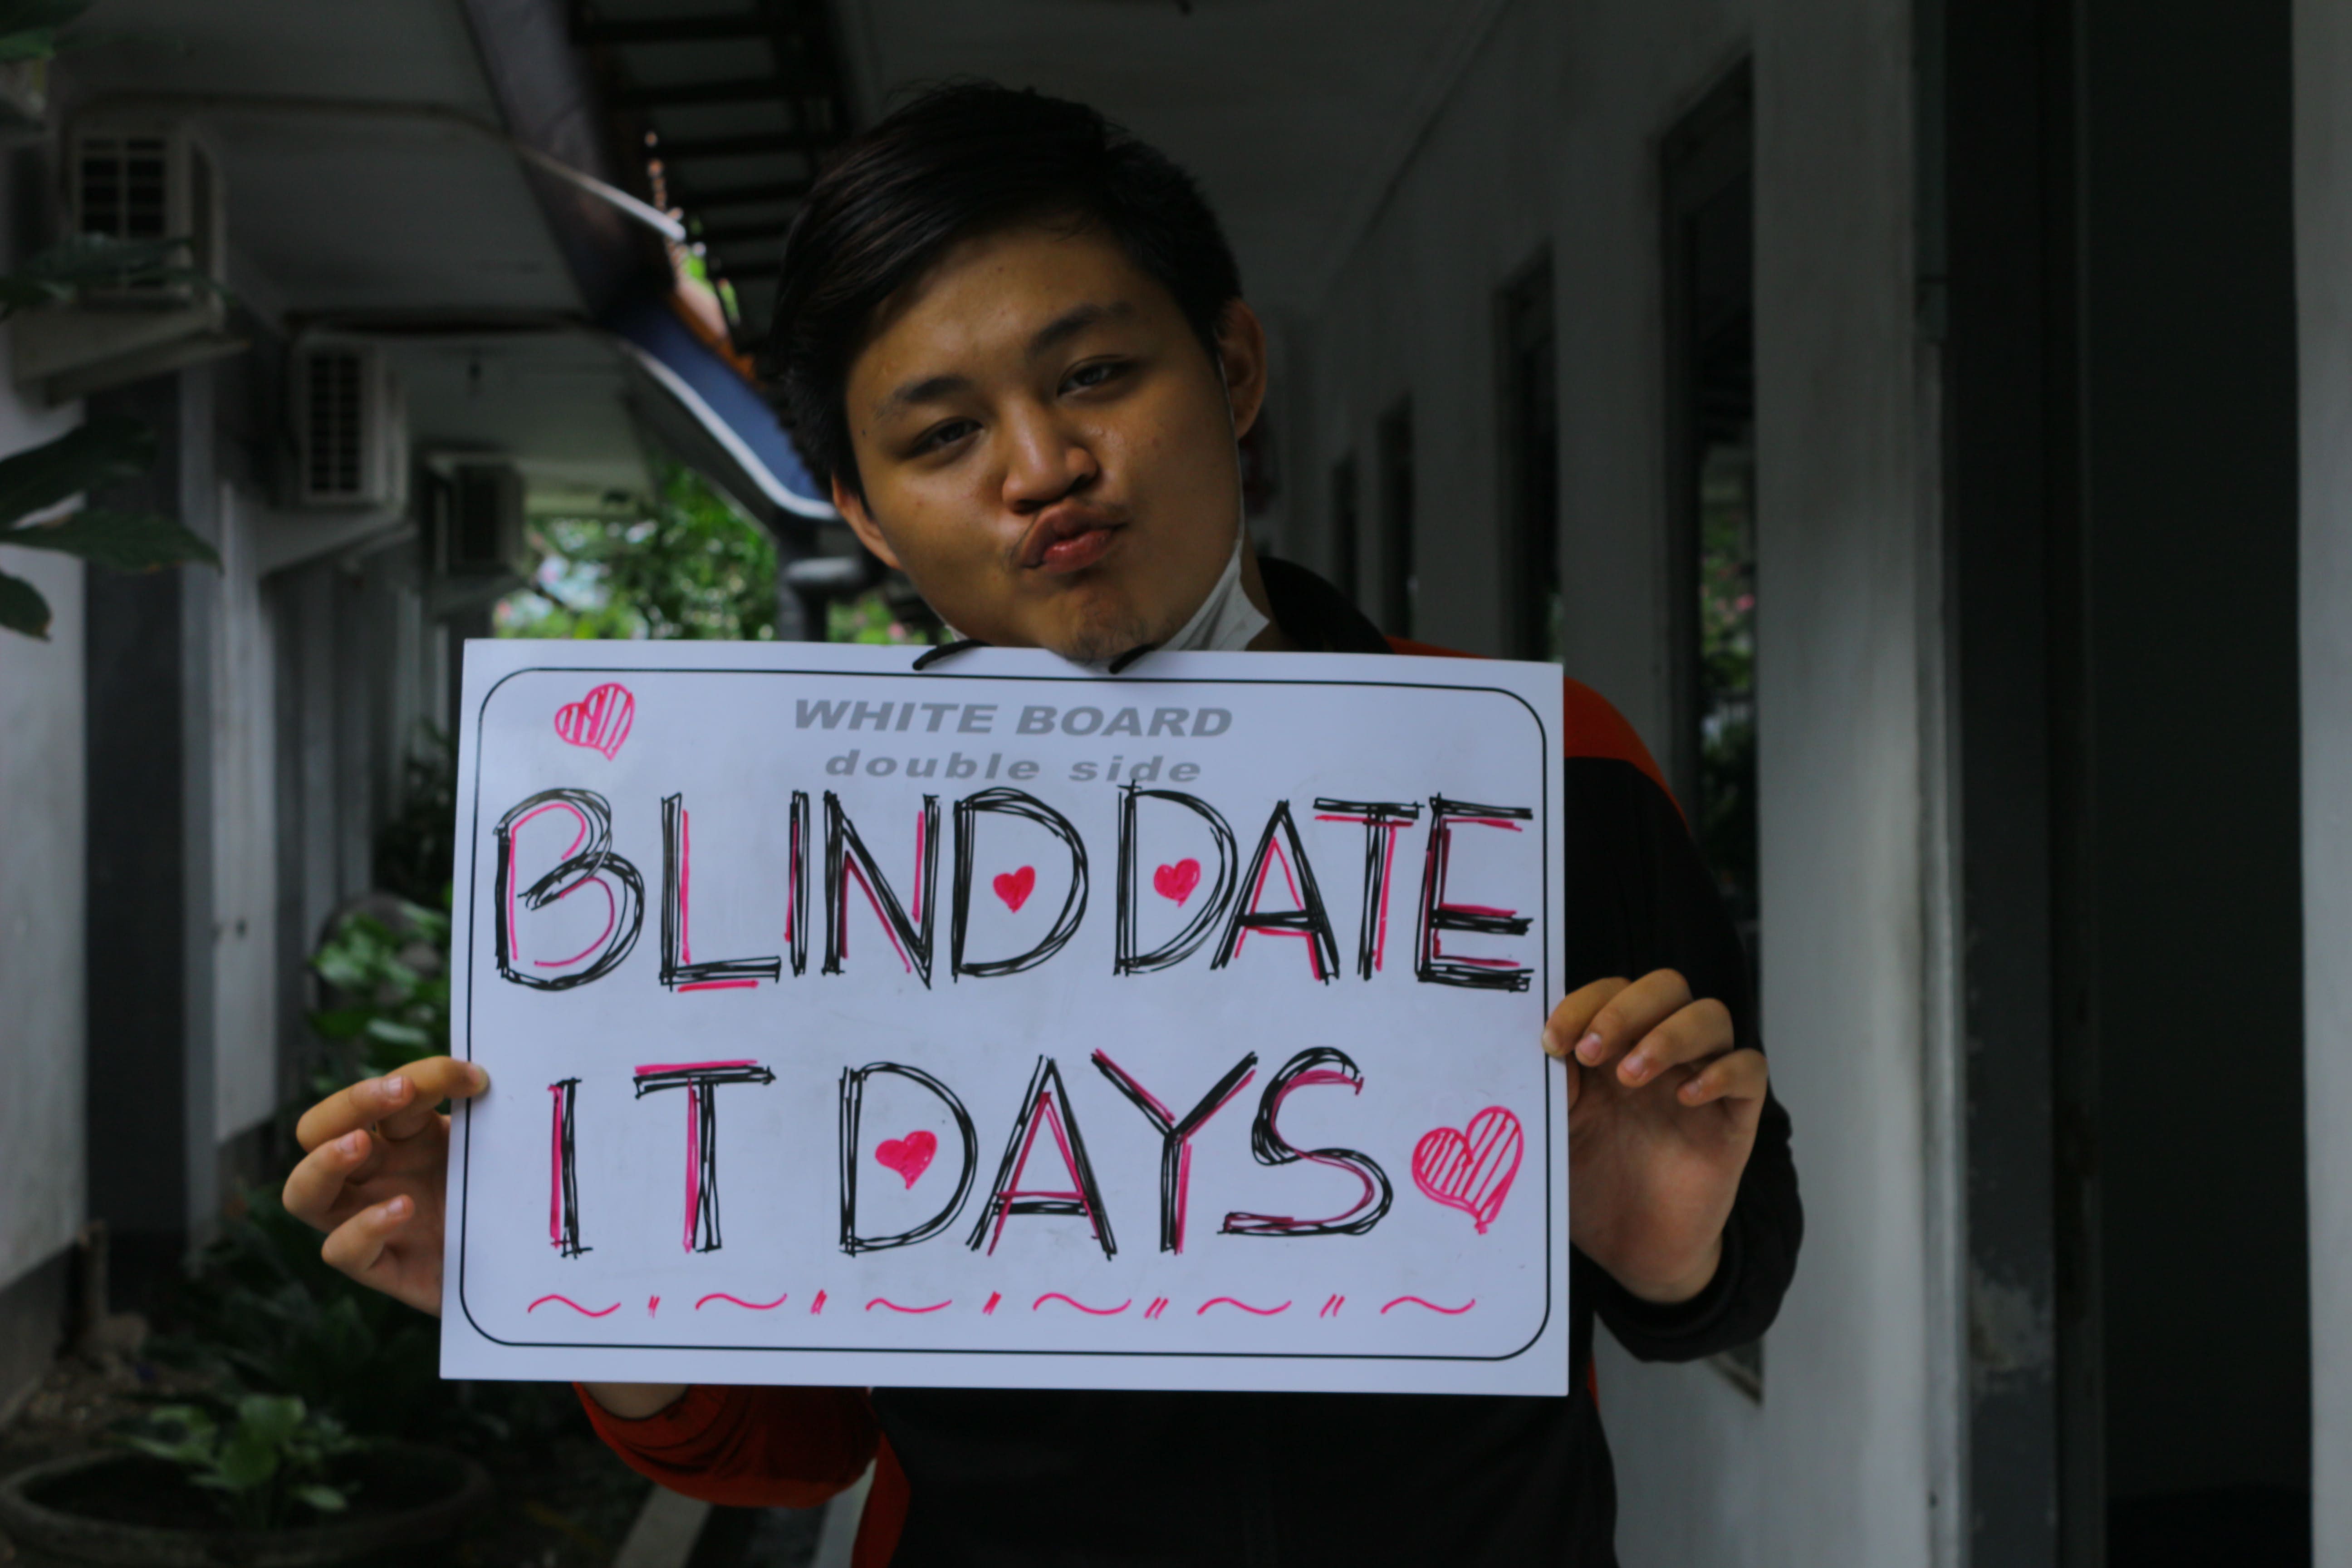 WHITE BOARD
double side
BLIND DATE
IT DAYS